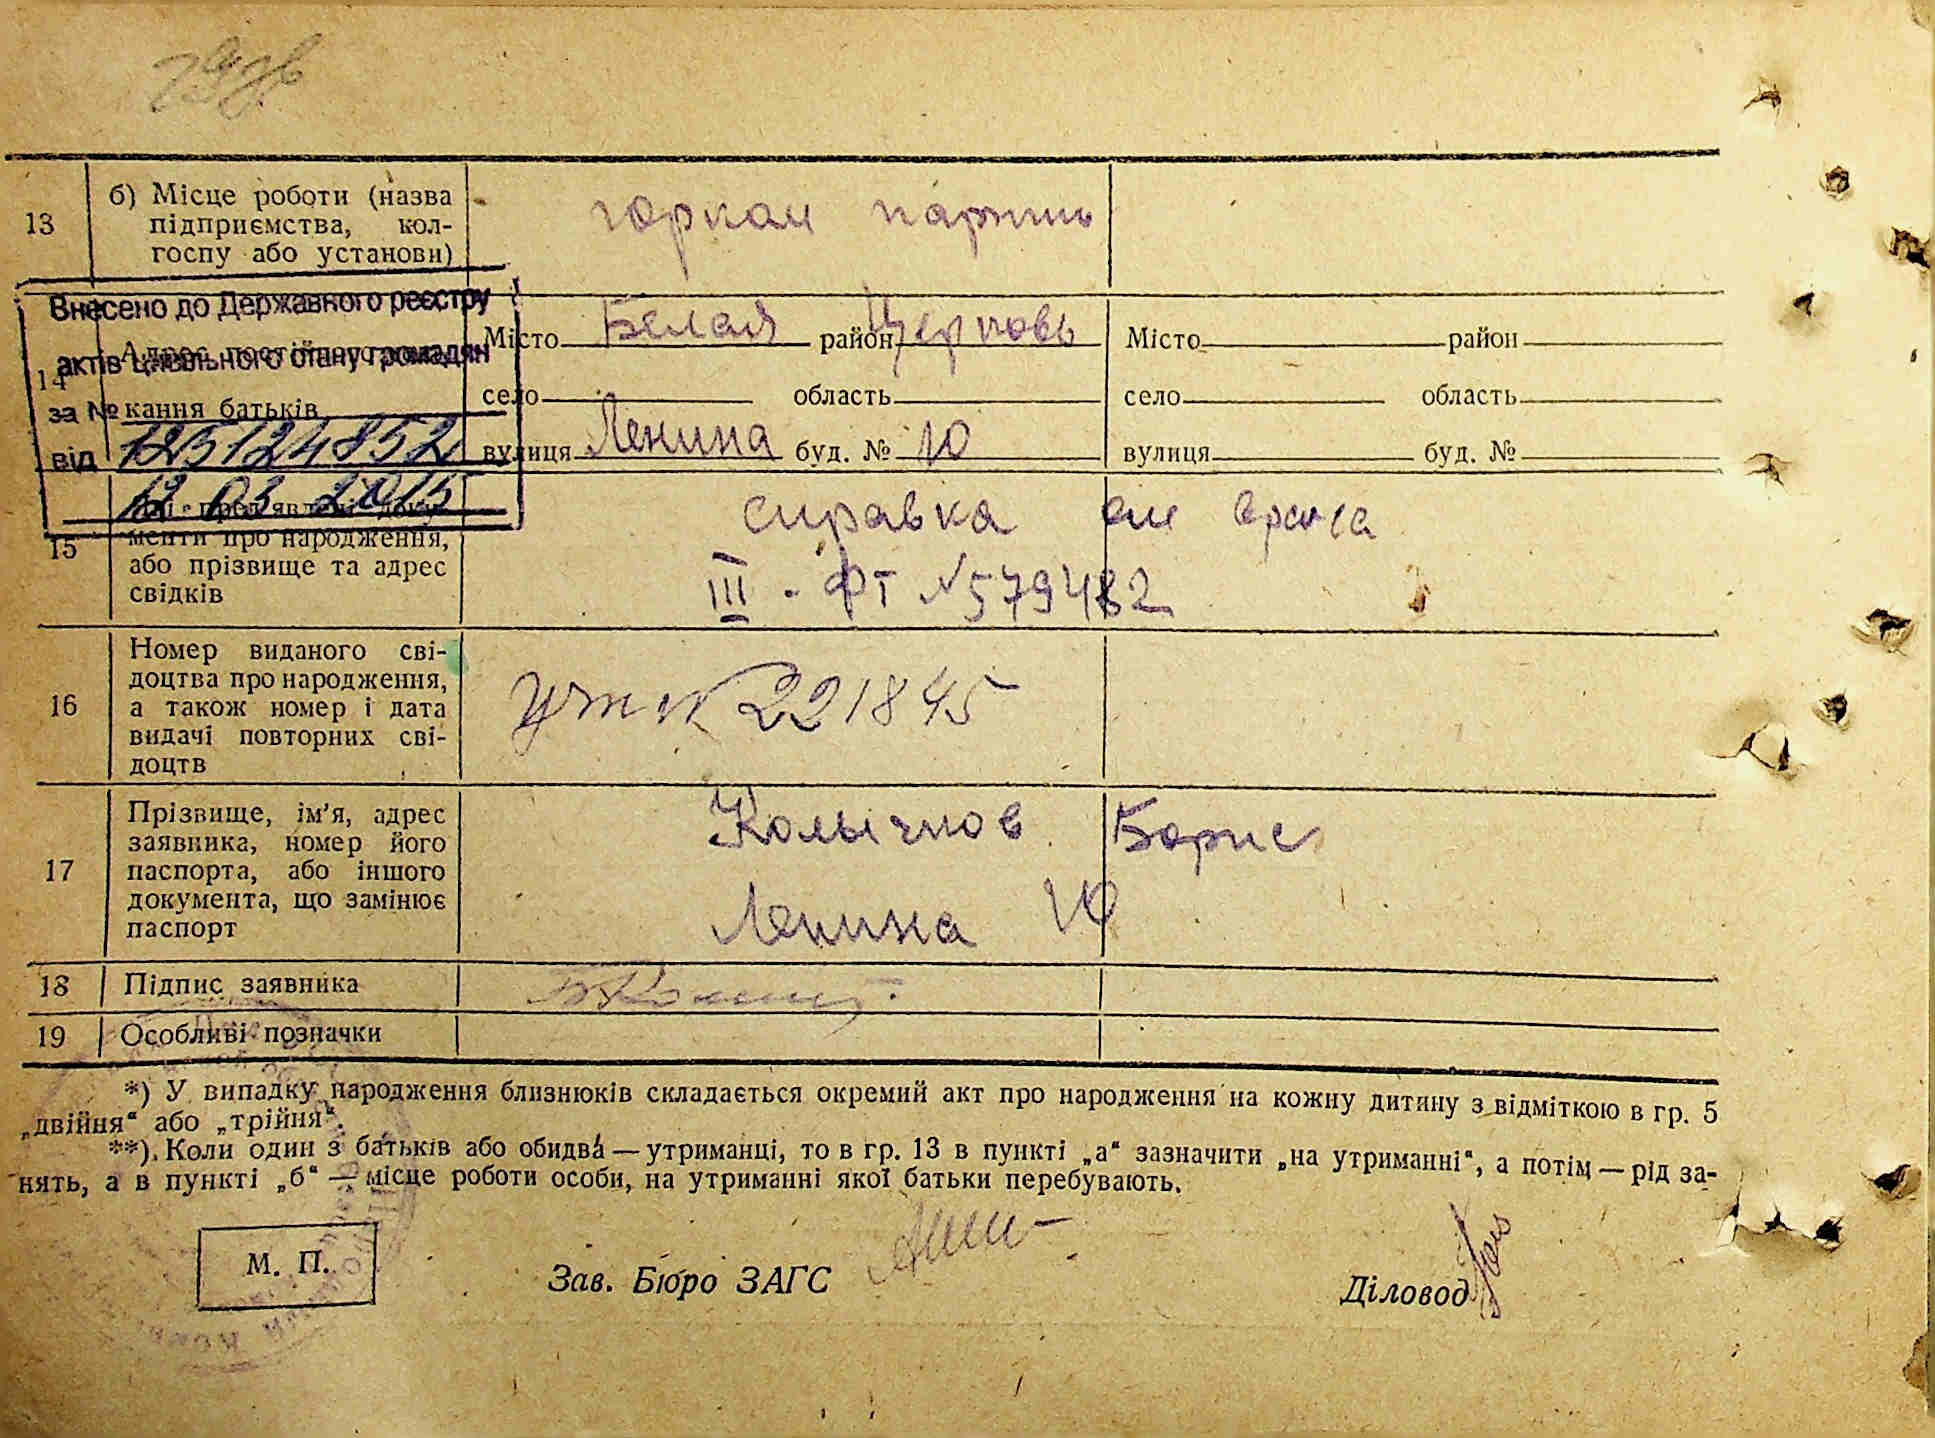 13 б) Місце роботи (назва
підприємства, кол-
госпу або установи)
горком партии
Внесено до Державного реєстру
актів цивільного стану громадян
за №
від 125124852
12 03 2015
14
кання батьків
Місто Белая район Церковь
село область
вулиця Ленина буд. № 10
Місто район
село область
вулиця буд. №
15
менти про народження,
або прізвище та адрес
свідків
справка от врача
III - ФТ № 579482
16 Номер виданого сві-
доцтва про народження,
а також номер і дата
видачі повторних сві-
доцтв
№ 221845
17 Прізвище, ім’я, адрес
заявника, номер його
паспорта, або іншого
документа, що замінює
паспорт
Борис
Ленина 10
18 Підпис заявника
19 Особливі позначки
*) У випадку народження близнюків складається окремий акт про народження на кожну дитину з відміткою в гр. 5
„двійня“ або „трійня“.
**) Коли один з батьків або обидва — утриманці, то в гр. 13 в пункті „а“ зазначити „на утриманні“, а потім — рід за-
нять, а в пункті „б“ — місце роботи особи, на утриманні якої батьки перебувають.
М. П.
Зав. Бюро ЗАГС
Діловод